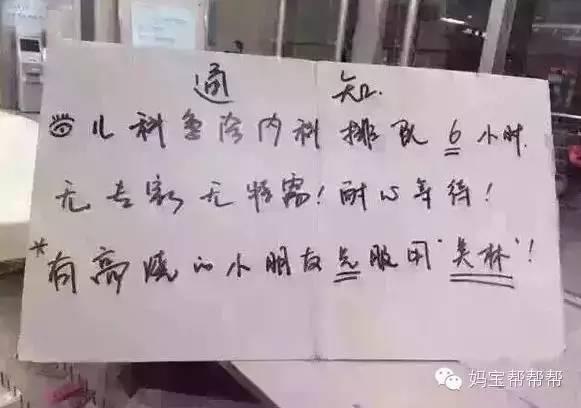 通知.
儿科急诊内科排队6小时.
无专家无特需!耐心等待!
*有高烧的小朋友先服用"美林"!
妈宝帮帮帮